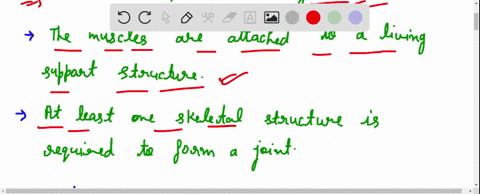 → The muscles are attached to a living
support structure.
→ At least one skeletal structure is
required to form a joint.